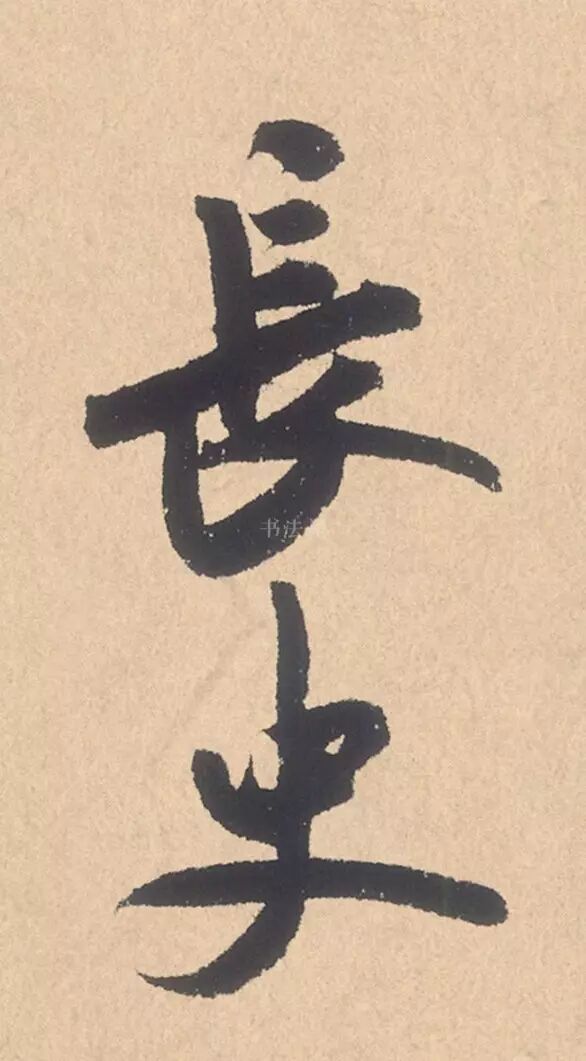 長史
书法